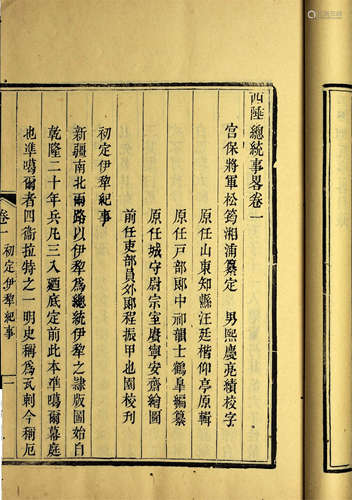 西陲總統事畧卷一
宫保將軍松筠湘浦纂定　男熙慶亮績校字
原任山東知縣汪廷楷仰亭原輯
原任戶部郎中祁韻士鶴臯編纂
原任城守尉宗室賡寧安齋繪圖
前任吏部員外郎程振甲也園校刊
初定伊犂紀事
新疆南北兩路以伊犂爲總統伊犂之隷版圖始自
乾隆二十年兵凡三入廼底定前此本準噶爾幕庭
也準噶爾者四衞拉特之一明史稱爲瓦剌今稱厄
卷一　初定伊犂紀事　一